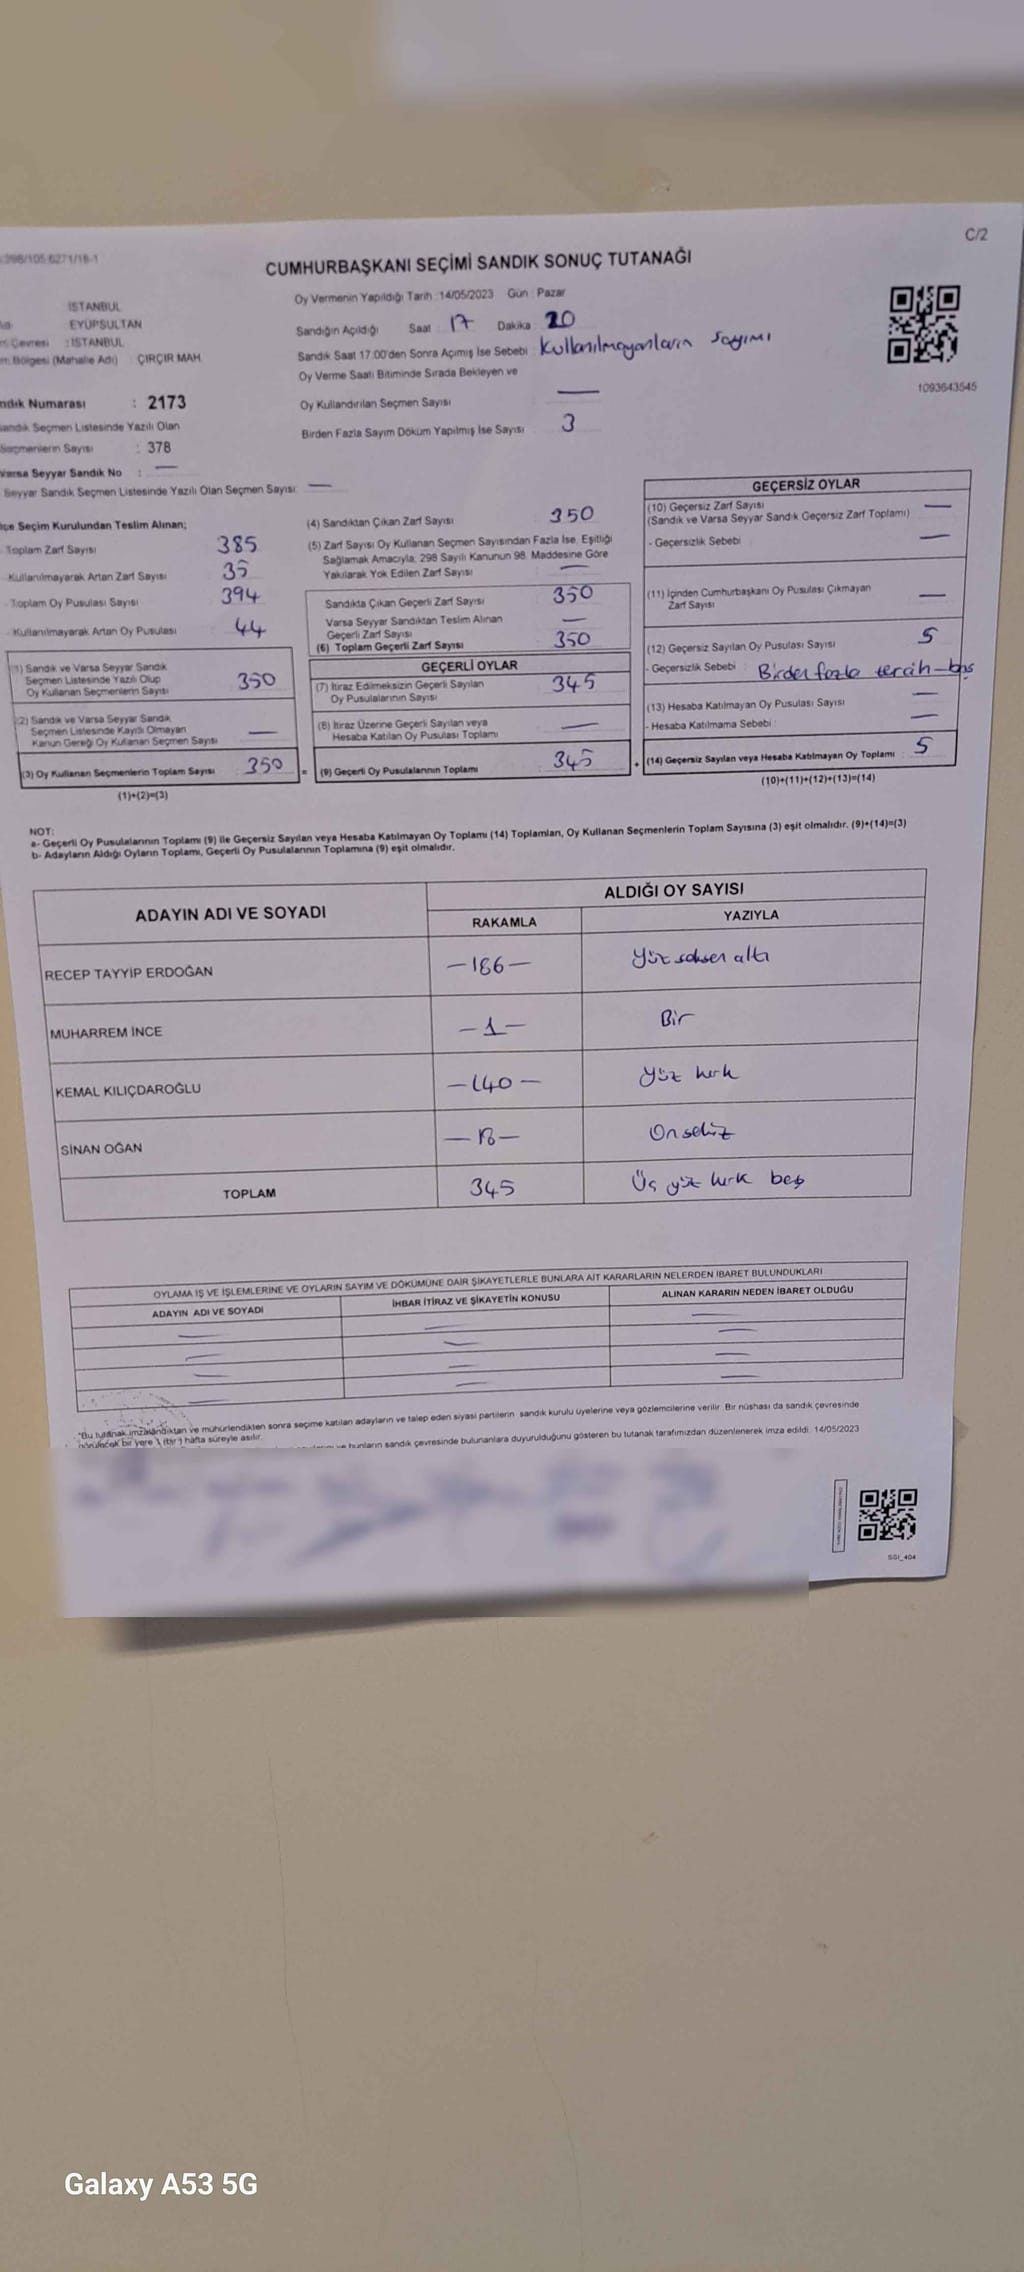 C/2
CUMHURBAŞKANI SEÇİMİ SANDIK SONUÇ TUTANAĞI
İSTANBUL
EYÜPSULTAN
Çevresi : İSTANBUL
Bölgesi (Mahalle Adı) : ÇIRÇIR MAH.
Numarası : 2173
Sandık Seçmen Listesinde Yazılı Olan
Seçmenlerin Sayısı : 378
Varsa Seyyar Sandık No : —
Seyyar Sandık Seçmen Listesinde Yazılı Olan Seçmen Sayısı: —
Oy Vermenin Yapıldığı Tarih :14/05/2023 Gün : Pazar
Sandığın Açıldığı Saat : 17 Dakika : 20
Sandık Saat 17:00'den Sonra Açımış İse Sebebi : Kullanılmayanların Sayımı
Oy Verme Saati Bitiminde Sırada Bekleyen ve
Oy Kullandırılan Seçmen Sayısı —
Birden Fazla Sayım Döküm Yapılmış İse Sayısı 3
1093643545
Seçim Kurulundan Teslim Alınan;
Toplam Zarf Sayısı 385
- Kullanılmayarak Artan Zarf Sayısı 35
- Toplam Oy Pusulası Sayısı 394
- Kullanılmayarak Artan Oy Pusulası 44
(1) Sandık ve Varsa Seyyar Sandık
Seçmen Listesinde Yazılı Olup
Oy Kullanan Seçmenlerin Sayısı 350
(2) Sandık ve Varsa Seyyar Sandık
Seçmen Listesinde Kayıtlı Olmayan
Kanun Gereği Oy Kullanan Seçmen Sayısı —
(3) Oy Kullanan Seçmenlerin Toplam Sayısı 350 =
(1)+(2)=(3)
(4) Sandıktan Çıkan Zarf Sayısı 350
(5) Zarf Sayısı Oy Kullanan Seçmen Sayısından Fazla İse, Eşitliği
Sağlamak Amacıyla; 298 Sayılı Kanunun 98. Maddesine Göre
Yakılarak Yok Edilen Zarf Sayısı —
Sandıkta Çıkan Geçerli Zarf Sayısı 350
Varsa Seyyar Sandıktan Teslim Alınan
Geçerli Zarf Sayısı —
(6) Toplam Geçerli Zarf Sayısı 350
GEÇERLİ OYLAR
(7) İtiraz Edilmeksizin Geçerli Sayılan
Oy Pusulalarının Sayısı 345
(8) İtiraz Üzerine Geçerli Sayılan veya
Hesaba Katılan Oy Pusulası Toplamı —
(9) Geçerli Oy Pusulalarının Toplamı 345 +
GEÇERSİZ OYLAR
(10) Geçersiz Zarf Sayısı
(Sandık ve Varsa Seyyar Sandık Geçersiz Zarf Toplamı) —
- Geçersizlik Sebebi : —
(11) İçinden Cumhurbaşkanı Oy Pusulası Çıkmayan
Zarf Sayısı —
(12) Geçersiz Sayılan Oy Pusulası Sayısı 5
- Geçersizlik Sebebi : Birden fazla tercih-boş
(13) Hesaba Katılmayan Oy Pusulası Sayısı —
- Hesaba Katılmama Sebebi : —
(14) Geçersiz Sayılan veya Hesaba Katılmayan Oy Toplamı : 5
(10)+(11)+(12)+(13)=(14)
NOT:
a- Geçerli Oy Pusulalarının Toplamı (9) ile Geçersiz Sayılan veya Hesaba Katılmayan Oy Toplamı (14) Toplamları, Oy Kullanan Seçmenlerin Toplam Sayısına (3) eşit olmalıdır. (9)+(14)=(3)
b- Adayların Aldığı Oyların Toplamı, Geçerli Oy Pusulalarının Toplamına (9) eşit olmalıdır.
ADAYIN ADI VE SOYADI ALDIĞI OY SAYISI
RAKAMLA YAZIYLA
RECEP TAYYİP ERDOĞAN —186— Yüz seksen altı
MUHARREM İNCE —1— Bir
KEMAL KILIÇDAROĞLU —140— Yüz kırk
SİNAN OĞAN —18— Onsekiz
TOPLAM 345 Üç yüz kırk beş
OYLAMA İŞ VE İŞLEMLERİNE VE OYLARIN SAYIM VE DÖKÜMÜNE DAİR ŞİKAYETLERLE BUNLARA AİT KARARLARIN NELERDEN İBARET BULUNDUKLARI
ADAYIN ADI VE SOYADI İHBAR İTİRAZ VE ŞİKAYETİN KONUSU ALINAN KARARIN NEDEN İBARET OLDUĞU
— — —
— — —
— — —
— — —
*Bu tutanak imzalandıktan ve mühürlendikten sonra seçime katılan adayların ve talep eden siyasi partilerin sandık kurulu üyelerine veya gözlemcilerine verilir. Bir nüshası da sandık çevresinde
görülecek bir yere 1 (bir) hafta süreyle asılır.
ve bunların sandık çevresinde bulunanlara duyurulduğunu gösteren bu tutanak tarafımızdan düzenlenerek imza edildi. 14/05/2023
SSI_404
Galaxy A53 5G